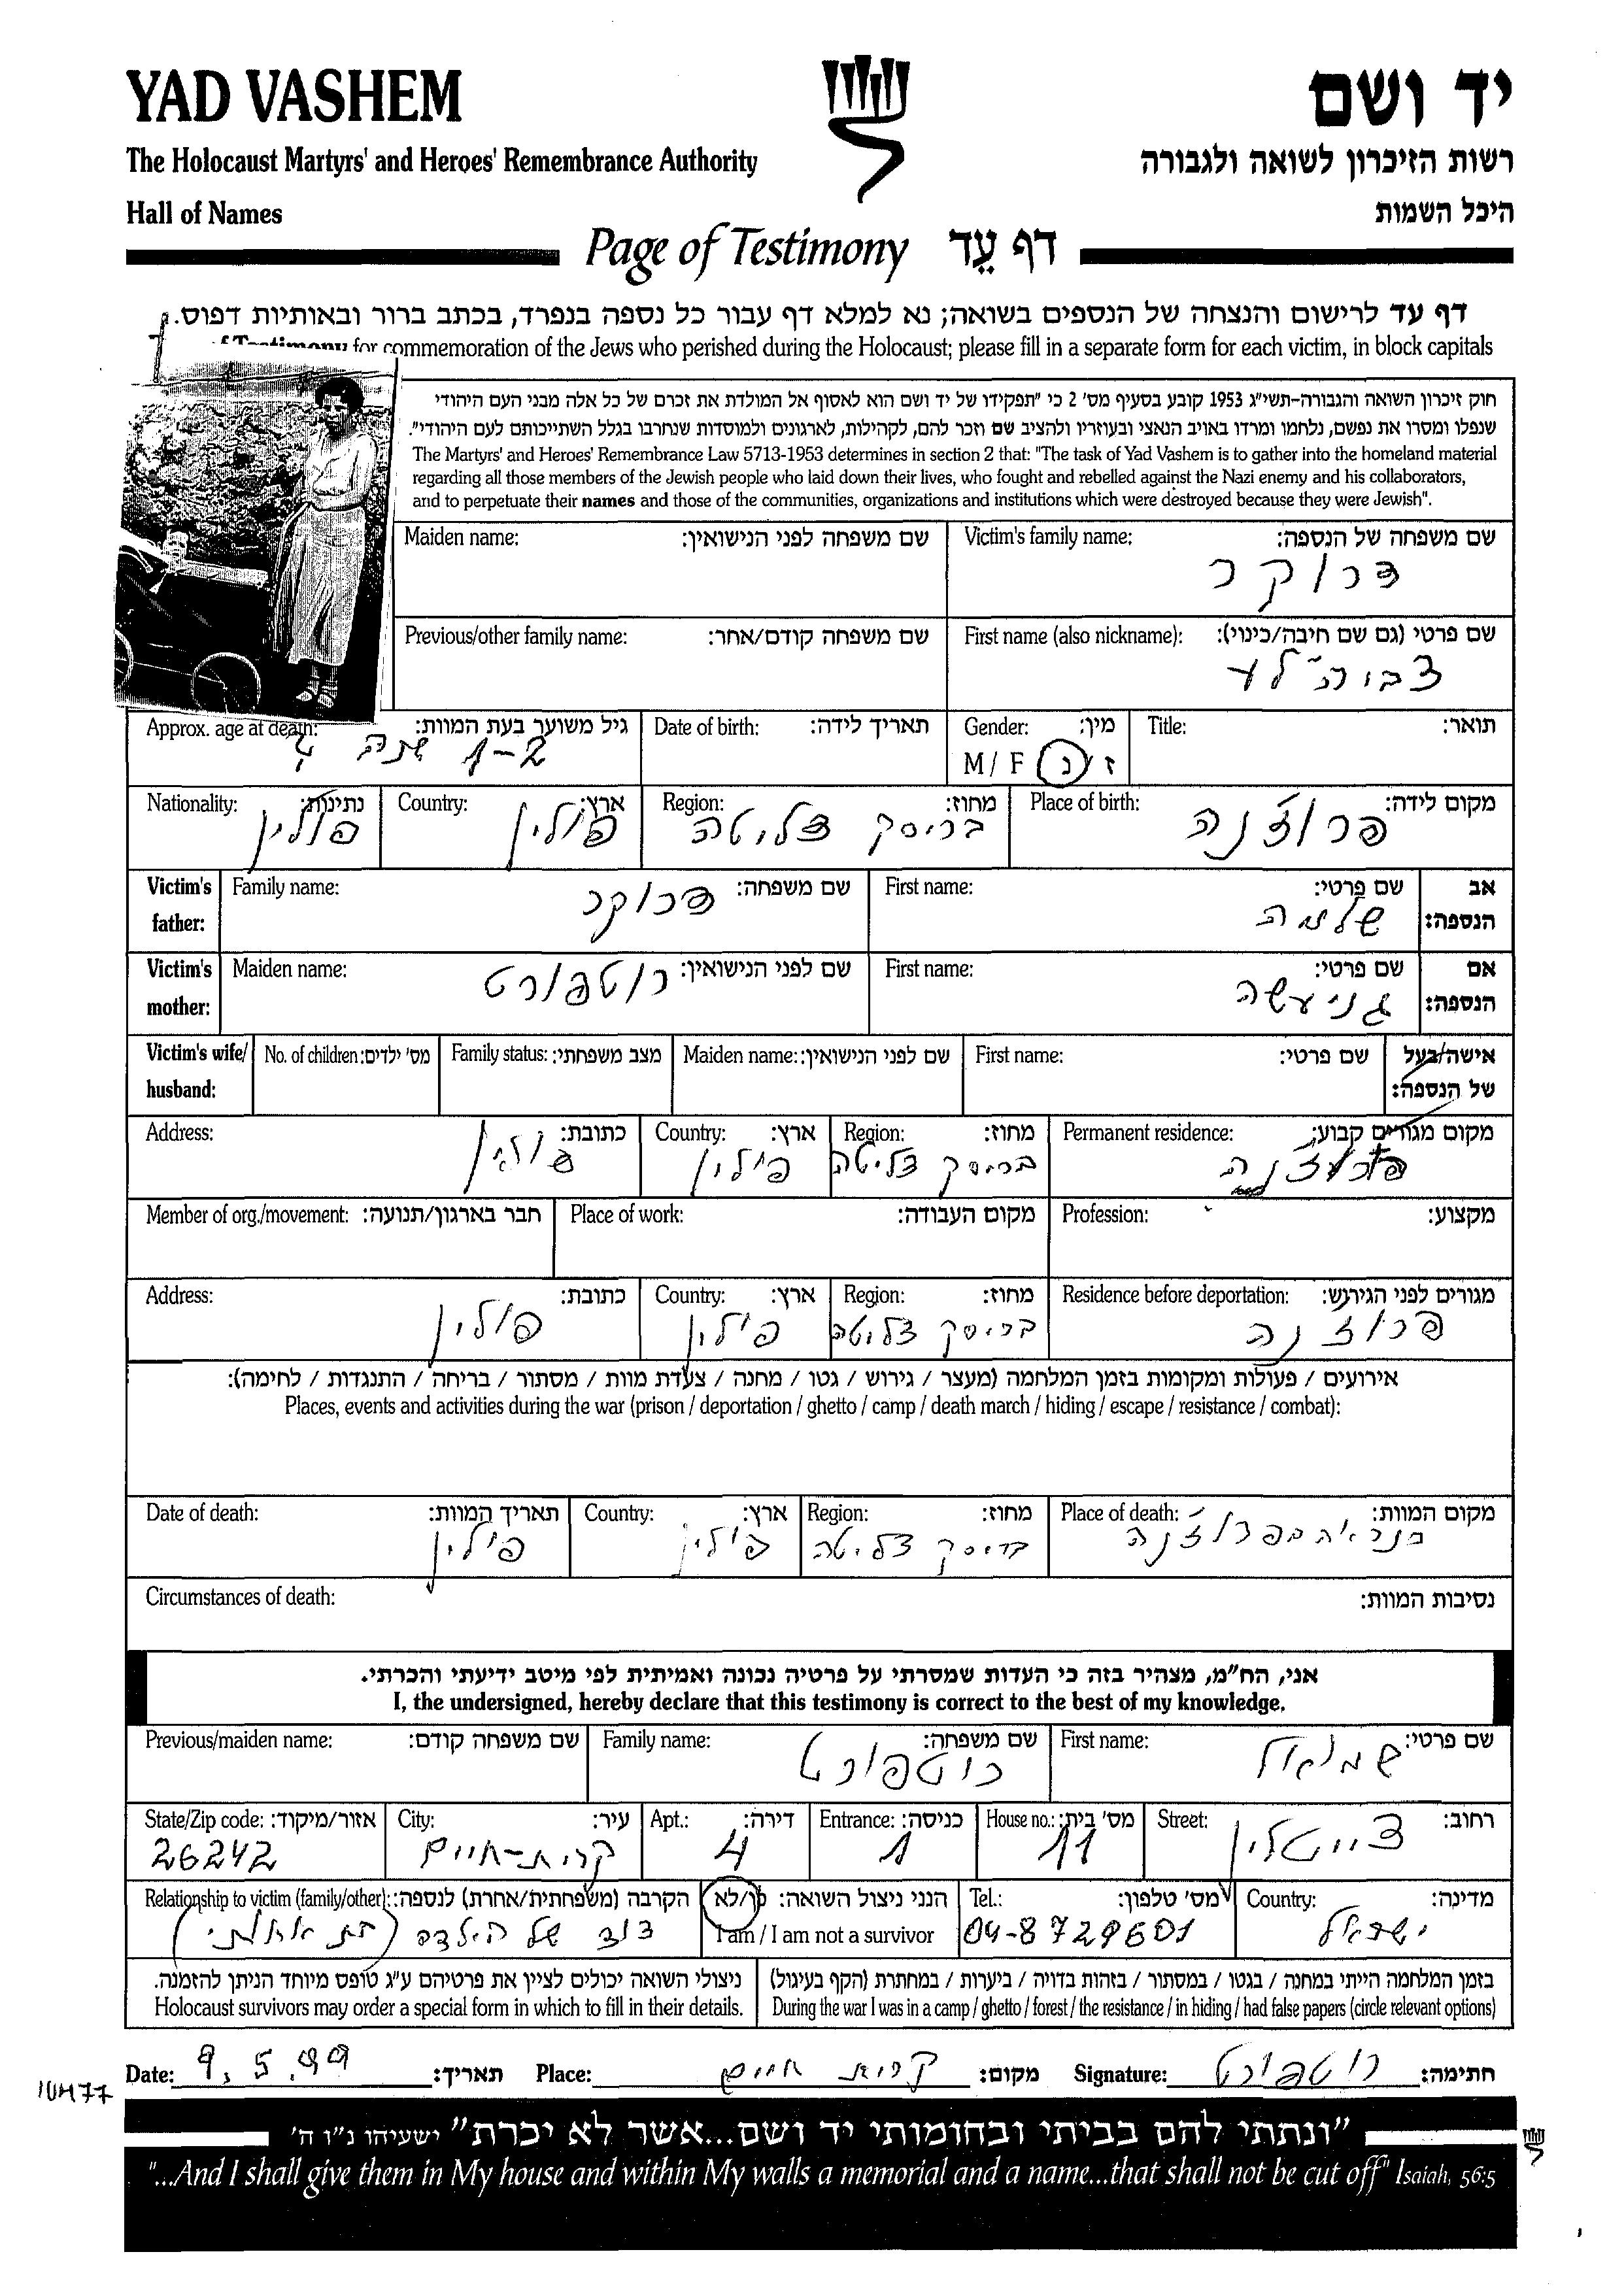 YAD VASHEM
יד ושם
The Holocaust Martyrs' and Heroes' Remembrance Authority
רשות הזיכרון לשואה ולגבורה
Hall of Names
היכל השמות
Page of Testimony דף עֵד
דף עד לרישום והנצחה של הנספים בשואה; נא למלא דף עבור כל נספה בנפרד, בכתב ברור ובאותיות דפוס.
of Testimony for commemoration of the Jews who perished during the Holocaust; please fill in a separate form for each victim, in block capitals
חוק זיכרון השואה והגבורה-תשי"ג 1953 קובע בסעיף מס' 2 כי "תפקידו של יד ושם הוא לאסוף אל המולדת את זכרם של כל אלה מבני העם היהודי
שנפלו ומסרו את נפשם, נלחמו ומרדו באויב הנאצי ובעוזריו ולהציב שם וזכר להם, לקהילות, לארגונים ולמוסדות שנחרבו בגלל השתייכותם לעם היהודי".
The Martyrs' and Heroes' Remembrance Law 5713-1953 determines in section 2 that: "The task of Yad Vashem is to gather into the homeland material
regarding all those members of the Jewish people who laid down their lives, who fought and rebelled against the Nazi enemy and his collaborators,
and to perpetuate their names and those of the communities, organizations and institutions which were destroyed because they were Jewish".
Victim's family name: שם משפחה של הנספה:
דרוקר
Maiden name: שם משפחה לפני הנישואין:
First name (also nickname): שם פרטי (גם שם חיבה/כינוי):
Previous/other family name: שם משפחה קודם/אחר:
Title: תואר:
Gender: מין:
M / F ז / נ
Date of birth: תאריך לידה:
Approx. age at death: גיל משוער בעת המוות:
1-2 שנה
Place of birth: מקום לידה:
פרוז'נה
Region: מחוז:
בריסק דליטה
Country: ארץ:
פולין
Nationality: נתינות:
פולין
Victim's father: אב הנספה:
First name: שם פרטי:
שלמה
Family name: שם משפחה:
דרוקר
Victim's mother: אם הנספה:
First name: שם פרטי:
גניעשה
Maiden name: שם לפני הנישואין:
רוטפורט
Victim's wife/ husband: אישה/בעל של הנספה:
First name: שם פרטי:
Maiden name: שם לפני הנישואין:
Family status: מצב משפחתי:
No. of children: מס' ילדים:
Permanent residence: מקום מגורים קבוע:
פרוז'נה
Region: מחוז:
בריסק דליטה
Country: ארץ:
פולין
Address: כתובת:
פולין
Profession: מקצוע:
Place of work: מקום העבודה:
Member of org./movement: חבר בארגון/תנועה:
Residence before deportation: מגורים לפני הגירוש:
פרוז'נה
Region: מחוז:
בריסק דליטה
Country: ארץ:
פולין
Address: כתובת:
פולין
אירועים / פעולות ומקומות בזמן המלחמה (מעצר / גירוש / גטו / מחנה / צעדת מוות / מסתור / בריחה / התנגדות / לחימה):
Places, events and activities during the war (prison / deportation / ghetto / camp / death march / hiding / escape / resistance / combat):
Place of death: מקום המוות:
כנראה בפרוז'נה
Region: מחוז:
בריסק דליטה
Country: ארץ:
פולין
Date of death: תאריך המוות:
פולין
Circumstances of death: נסיבות המוות:
אני, הח"מ, מצהיר בזה כי העדות שמסרתי על פרטיה נכונה ואמיתית לפי מיטב ידיעתי והכרתי.
I, the undersigned, hereby declare that this testimony is correct to the best of my knowledge.
First name: שם פרטי:
שמואל
Family name: שם משפחה:
רוטפורט
Previous/maiden name: שם משפחה קודם:
Street: רחוב:
צייטלין
House no.: מס' בית:
11
Entrance: כניסה:
1
Apt.: דירה:
4
City: עיר:
קרית-חיים
State/Zip code: אזור/מיקוד:
26242
Country: מדינה:
ישראל
Tel.: מס' טלפון:
04-8729601
הנני ניצול השואה: כן/לא
I am / I am not a survivor
Relationship to victim (family/other): הקרבה (משפחתית/אחרת) לנספה:
דוד של הילדה (בת אחותי)
בזמן המלחמה הייתי במחנה / בגטו / במסתור / בזהות בדויה / ביערות / במחתרת (הקף בעיגול)
During the war I was in a camp / ghetto / forest / the resistance / in hiding / had false papers (circle relevant options)
ניצולי השואה יכולים לציין את פרטיהם ע"ג טופס מיוחד הניתן להזמנה.
Holocaust survivors may order a special form in which to fill in their details.
Date: 9.5.99 תאריך: Place: קרית חיים מקום: Signature: רוטפורט חתימה:
"ונתתי להם בביתי ובחומותי יד ושם...אשר לא יכרת" ישעיהו נ"ו ה'
"...And I shall give them in My house and within My walls a memorial and a name...that shall not be cut off" Isaiah, 56:5